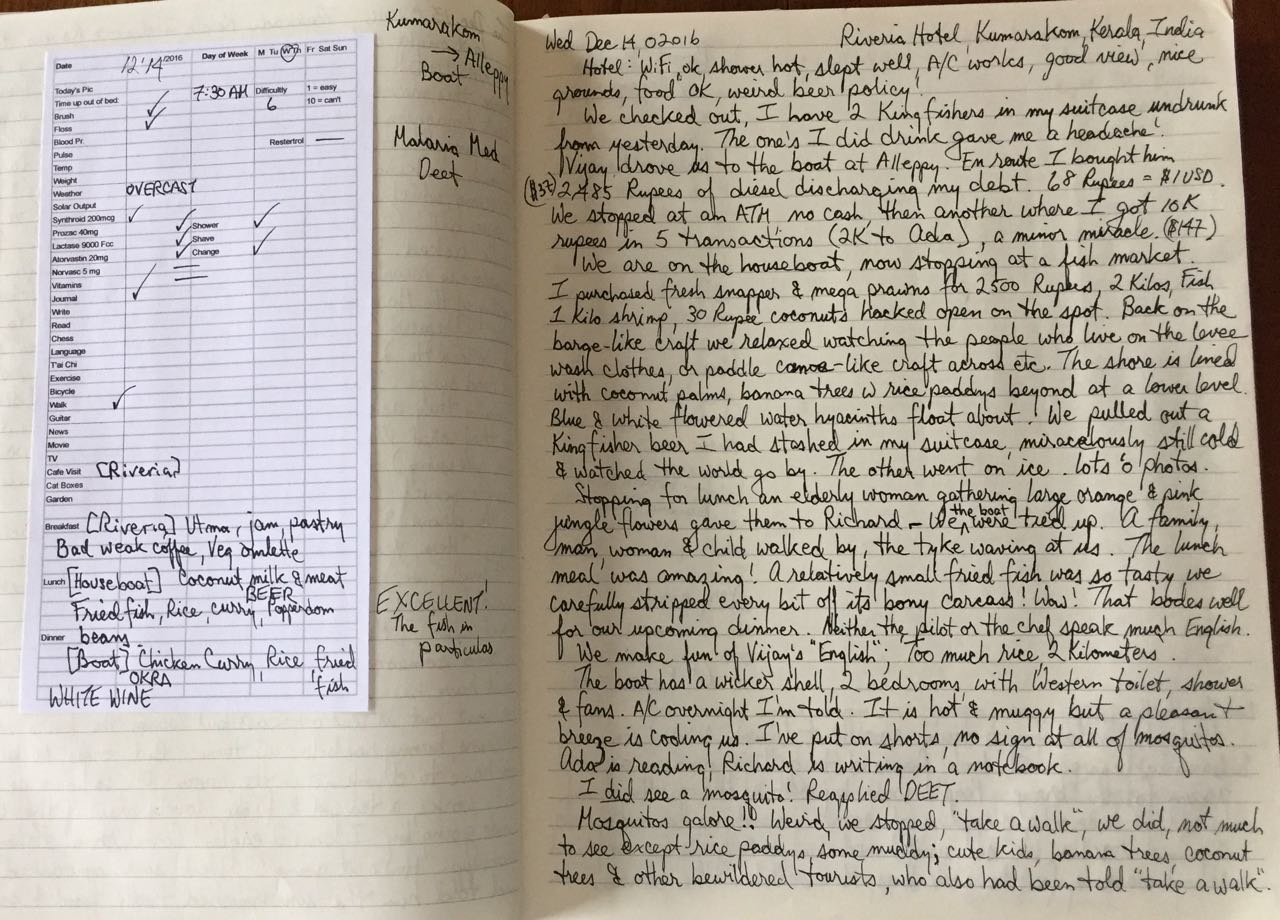 Date 12/14/2016 Day of Week M Tu W Th Fr Sat Sun
Today's Pic
Time up out of bed: 7:30 AM Difficultly 6 1 = easy 10 = can't
Brush
Floss
Blood Pr. Restertrol —
Pulse
Temp
Weight
Weather OVERCAST
Solar Output
Synthroid 200mcg ✓ ✓ Shower ✓
Prozac 40mg ✓ Shave
Lactase 9000 Fcc ✓ Change ✓
Atorvastin 20mg
Norvasc 5 mg
Vitamins
Journal ✓
Write
Read
Chess
Language
T'ai Chi
Exercise
Bicycle
Walk ✓
Guitar
News
Movie
TV
Cafe Visit [Riveria]
Cat Boxes
Garden
Breakfast [Riveria] Utma, jam, pastry
Bad weak coffee, Veg omlette
Lunch [Houseboat] Coconut milk & meat
BEER
Fried fish, Rice, curry, Popperdom
Dinner beans
[Boat] Chicken Curry, Rice fried
OKRA fish
WHITE WINE
Kumarakom
→ Alleppy
Boat
Malaria Med
Deet
EXCELLENT!
The fish in
particulas
Wed Dec 14, 02016 Riveria Hotel, Kumarakom, Kerala, India
Hotel: WiFi ok, shower hot, slept well, A/C works, good view, nice
grounds, food OK, weird beer policy.
We checked out, I have 2 Kingfishers in my suitcase undrunk
from yesterday. The one's I did drink gave me a headache!
Vijay drove us to the boat at Alleppy. En route I bought him
($37) 2,485 Rupees of diesel discharging my debt. 68 Rupees = $1 USD.
We stopped at an ATM no cash then another where I got 10K
rupees in 5 transactions (2K to Ada), a minor miracle. ($147)
We are on the houseboat, now stopping at a fish market.
I purchased fresh snapper & mega prawns for 2500 Rupees, 2 Kilos, Fish
1 Kilo shrimp, 30 Rupee coconuts hacked open on the spot. Back on the
barge-like craft we relaxed watching the people who live on the levee
wash clothes, or paddle canoe-like craft across etc. The shore is lined
with coconut palms, banana trees w rice paddys beyond at a lower level.
Blue & white flowered water hyacinths float about! We pulled out a
Kingfisher beer I had stashed in my suitcase, miraculously still cold
& watched the world go by. The other went on ice. lots o photos.
Stopping for lunch an elderly woman gathering large orange & pink
jungle flowers gave them to Richard – We, the boat, were tied up. A family,
man, woman & child, walked by, the tyke waving at us. The lunch
meal was amazing! A relatively small fried fish was so tasty we
carefully stripped every bit off its bony carcass! Wow! That bodes well
for our upcoming dinner. Neither the pilot or the chef speak much English.
We make fun of Vijay's "English"; Too much rice, 2 Kilometers.
The boat has a wicker shell, 2 bedrooms, with Western toilet, shower
& fans. A/C overnight I'm told. It is hot & muggy but a pleasant
breeze is cooling us. I've put on shorts, no sign at all of mosquitos.
Ada is reading, Richard is writing in a notebook.
I did see a mosquito! Reapplied DEET.
Mosquitos galore!! Weird, we stopped, "take a walk", we did, not much
to see except rice paddys, some muddy; cute kids, banana trees, coconut
trees & other bewildered tourists, who also had been told "take a walk".